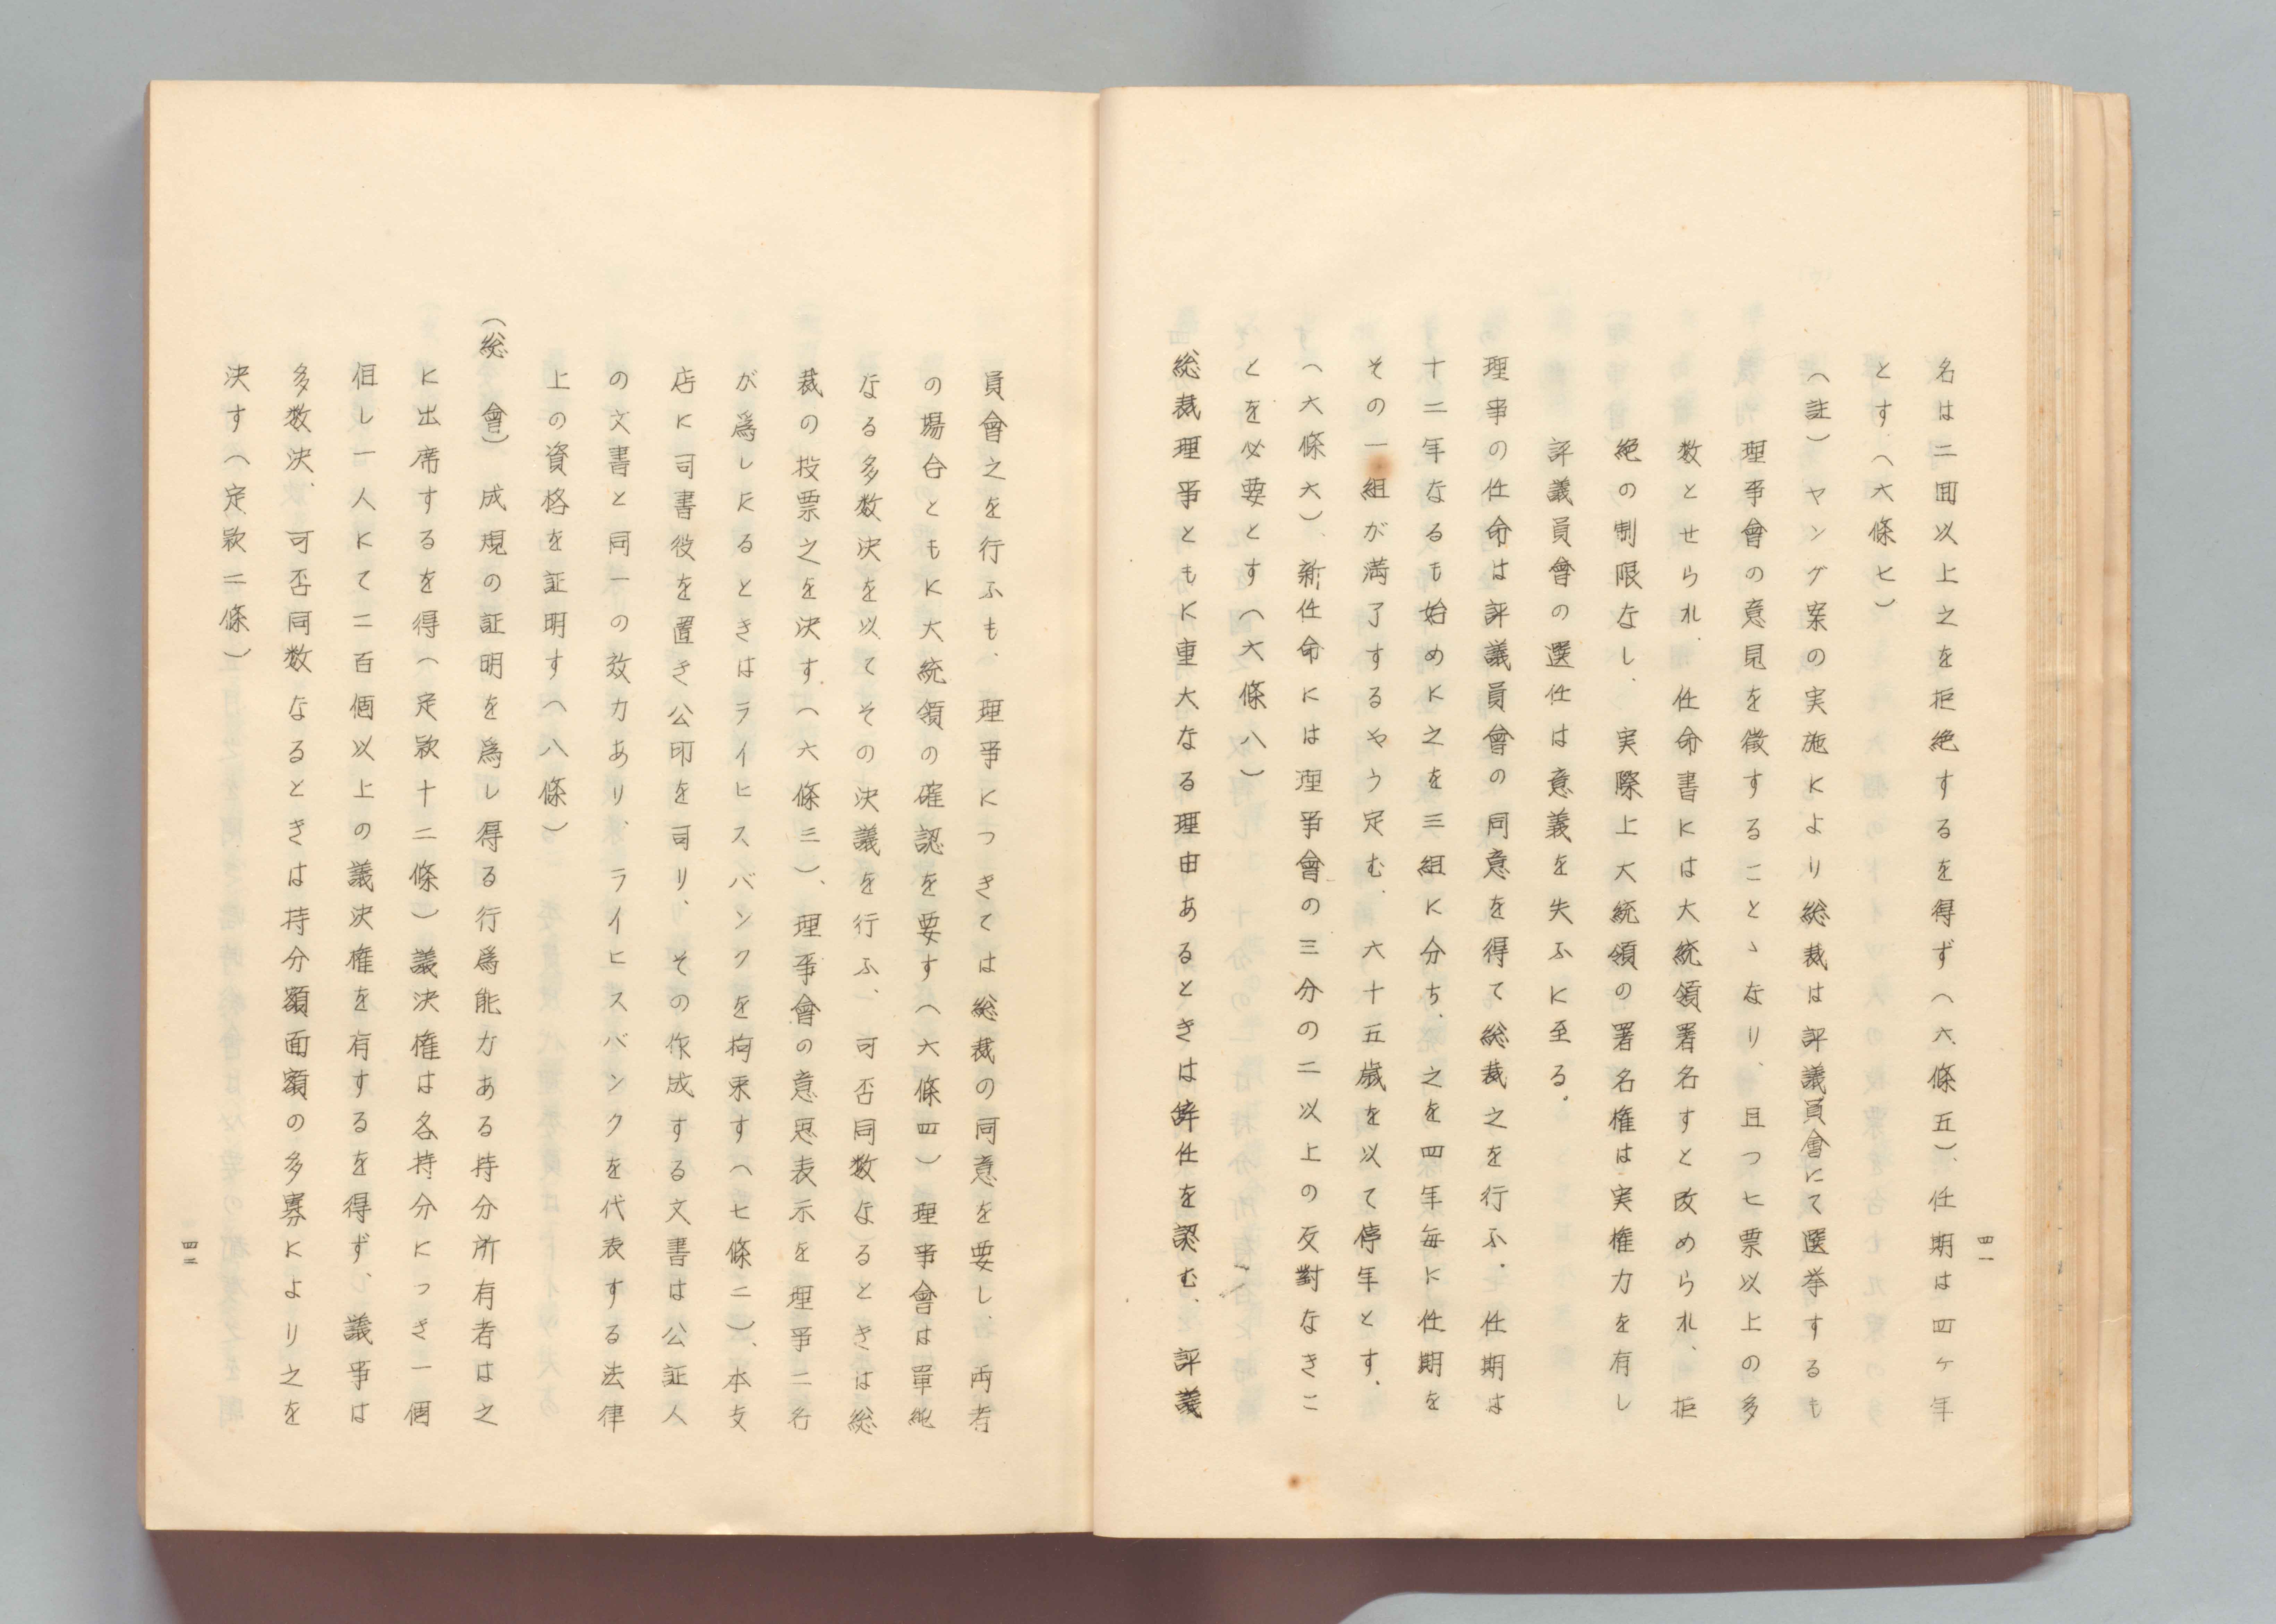 名は二囬以上之を拒絶するを得ず（六條五）、任期は四ヶ年
とす、（六條七）
（註）ヤング案の実施により総裁は評議員會にて選挙するも
理事會の意見を徴することゝなり、且つ七票以上の多
数とせられ、任命書には大統領署名すと改められ、拒
絶の制限なし、実際上大統領の署名権は実権力を有し
評議員會の選任は意義を失ふに至る。
理事の任命は評議員會の同意を得て総裁之を行ふ。任期は
十二年なるも始めに之を三組に分ち、之を四年毎に任期を
その一組が満了するやう定む、六十五歳を以て停年とす、
（六條六）、新任命には理事會の三分の二以上の反對なきこ
とを必要とす（六條八）
総裁理事ともに重大なる理由あるときは辞任を認む、評議
四一
員會之を行ふも、理事につきては総裁の同意を要し、両者
の場合ともに大統領の確認を要す（六條四）理事會は単純
なる多数決を以てその決議を行ふ、可否同数なるときは総
裁の投票之を決す、（六條三）、理事會の意思表示を理事二名
が爲しにるときはライヒスバンクを拘束す（七條二）、本支
店に司書役を置き公印を司り、その作成する文書は公証人
の文書と同一の效力あり、ライヒスバンクを代表する法律
上の資格を証明す（八條）
（総　會）成規の証明を爲し得る行爲能力ある持分所有者は之
に出席するを得（定款十二條）議決権は各持分につき一個
但し一人にて二百個以上の議決権を有するを得ず、議事は
多数決、可否同数なるときは持分額面額の多寡により之を
決す（定款二條）
四二